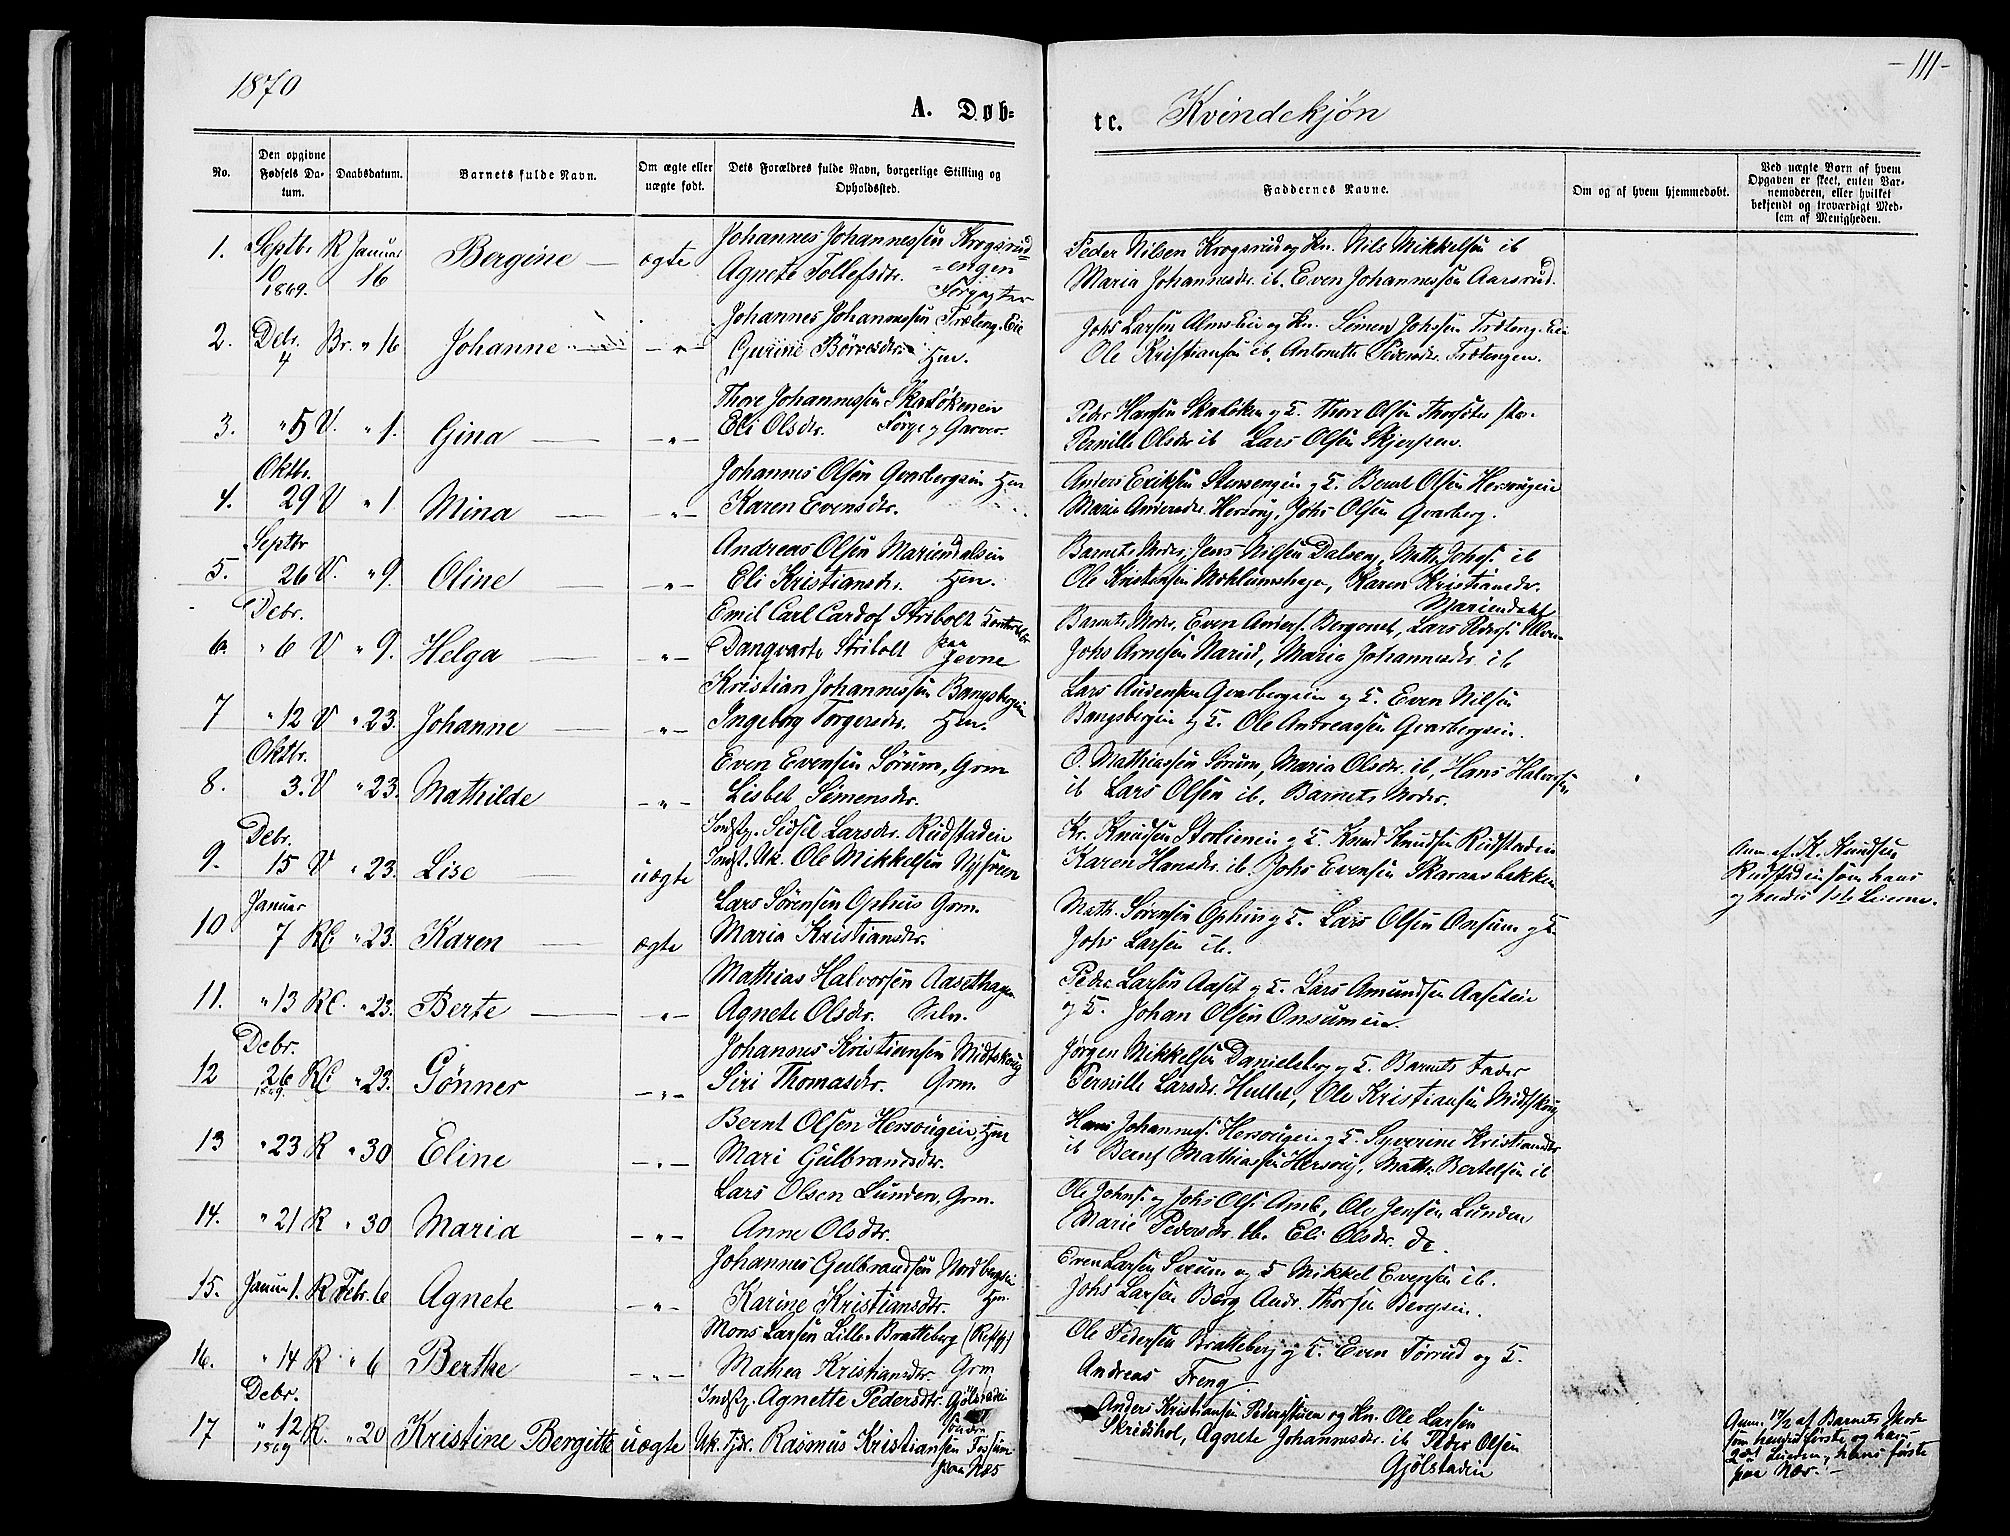 1870
-111-
A. Døb=
te. Kvindekjøn
No.
Den opgivne Fødsels Da-tum.
Daabsdatum.
Barnets fulde Navn.
Om ægte eller uægte født.
Dets Forældres fulde Navn, borgerlige Stilling og Opholdssted.
Faddernes Navne.
Om og af hvem hjemmedøbt.
Ved uægte Børn af hvem Opgaven er skeet, enten Bar-nemoderen, eller hvilket bekjendt og troværdigt Med-lem af Menigheden.
1. Septbr. 10 1869. R Januar 16 Bergine ægte
Johannes Johannessen Krogsrud=
=engen
Agnete Tollefsdtr.
Peder Nilsen Krogsrud og Kn. Nils Mikkelsen ib
Maria Johannesdr. ib. Even Johannessen Aarsrud.
2. Debr. 4 Br. " 16 Johanne - " -
Johannes Johannessen Træteng. Eie
Gurine Hm.
Johs Larsen Alms Eie og Kn. Simen Johssen Træteng. Eie
Ole Kristiansen ib. Antonette Pedersdr. Trætengen.
3. " 5 V. " 1. Gina - " -
Thore Johannessen
Eli Olsdtr.
Peder Hansen og T. Thore Olsen
Pernille Olsdr ib Lars Olsen Skjerpen.
4. Oktbr. 29 V " 1. Mina - " -
Johannes Olsen Qvarbergsein Hm
Karen Evensdtr.
Anders Eriksen Stensengein og T. Bernt Olsen Hersougein
Maria Andersdr. Hersoug, Johs Olsen Qvarberg.
5. Septbr 26 V. " 9. Oline - " -
Andreas Olsen Mariendalsein
Eli Kristiansdr. Hm.
Barnets Moder, Jens Nilsen Dalseng, Math. Johs. ib
Ole Kristiansen Moklumshage, Karen Kristiansdr.
Mariendahl
6. Debr. " 6 V " 9. Helga - " -
Emil Carl Cardof Stribolt
Dangvarte Stribolt paa Jevne
Barnets Moder, Even Anders. Bergonet, Lars Peders.
Johs Arnesen Narud, Maria Johannesdr ib
7 " 12 V " 23. Johanne - " -
Kristian Johannessen Bangsbergein
Ingeborg Torgersdr. Hm.
Lars Audensen Qvarbergsein og T. Even Nilsen
Bangsbergein og T. Ole Andreassen Qvarbergsein.
8. Oktbr. 3. V " 23. Mathilde - " -
Even Evensen Sørum, Grm
Lisbet Simensdr.
O. Mathiassen Sørum, Maria Olsdr. ib, Hans Halvorsen
ib Lars Olsen ib. Barnets Moder.
9. Debr. 15 V " 23. Lise uægte
Indst. Sidsel Larsdr. Rudstadein
Indst. Uk. Ole Mikkelsen Nysveen
Kr. Knudsen Storlienein og T. Knud Knudsen Rudstadein
Karen Hansdr. ib. Johs Evensen Skaraasbakken
Anm. af K. Knudsen
Rudstadein som hans
og hendes 1ste Leierm.
10 Januar 7 RK " 23. Karen ægte
Lars Sørensen Ophus Grm.
Maria Kristiansdr.
Math. Sørensen Ophus og T. Lars Olsen Onsum og T.
Johs Larsen ib.
11. " 13 RK. " 23. Berte - " -
Mathias Halvorsen Aasethagen
Agnete Olsdr. Selv.
Peder Larsen Aaset og T. Lars Amundsen Aasetein
og T. Johan Olsen Onsumein.
12 Debr. 26 1869. RK " 23. Gønner - " -
Johannes Kristiansen Midtskoug
Siri Thomasdr. Grm.
Jørgen Mikkelsen Danielsberg og T. Barnets Fader
Pernille Larsdr. Hullet, Ole Kristiansen Midtskoug
13 " 23 R " 30 Eline - " -
Bernt Olsen Hersougein, Hm
Mari Gulbrandsdr.
Hans Johanness. Hersougein og T. Syverine Kristiansdr
ib Bernt Mathiassen Hersoug, Math. Bertelsen ib
14. " 21 R " 30 Maria - " -
Lars Olsen Lunden, Grm.
Anne Olsdtr.
Ole Johns. og Johs Ols. Amb. Ole Jensen Lunden
Marie Pedersdr. do. Eli Olsdr. do.
15. Januar 1. R Febr. 6 Agnete - " -
Johannes Gulbrandsen Nordbergsei
Karine Kristiansdtr. Hm.
Even Larsen og T Mikkel Evensen ib.
Johs Larsen Berg Andr. Thorsen Bergsein.
16. " 14 R " 6 Berthe - " -
Mons Larsen Lille-Bratteberg
Mathea Kristiansdr. Grm
Ole Pedersen Bratteberg og T. Even Torrud og T.
Andreas Freng
17 Debr. " 12 1869 R. " 20 Kristine Bergitte uægte
Indst. Agnette Pedersdtr. Gjølstadein
Uk. Tjdr. Rasmus Kristiansen Fossum
søndre
paa Næs
Anders Kristiansen Pedersstuen og Kn. Ole Larsen
Skredshol, Agnete Johannesdr. ib Peder Olsen
Gjølstadein
Anm. 17/2 af Barnets Moder
som hendes første og hans
2det Leierm. hans første
paa Næs.-